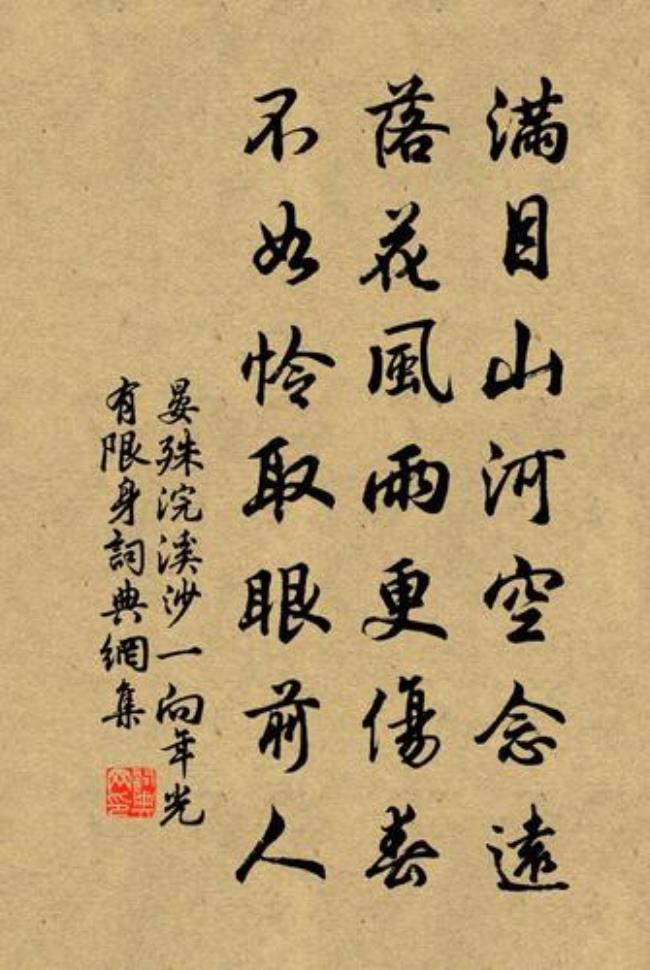 滿目山河空念遠
落花風雨更傷春
不如憐取眼前人
晏殊浣溪沙一向年光
有限身詞典網集